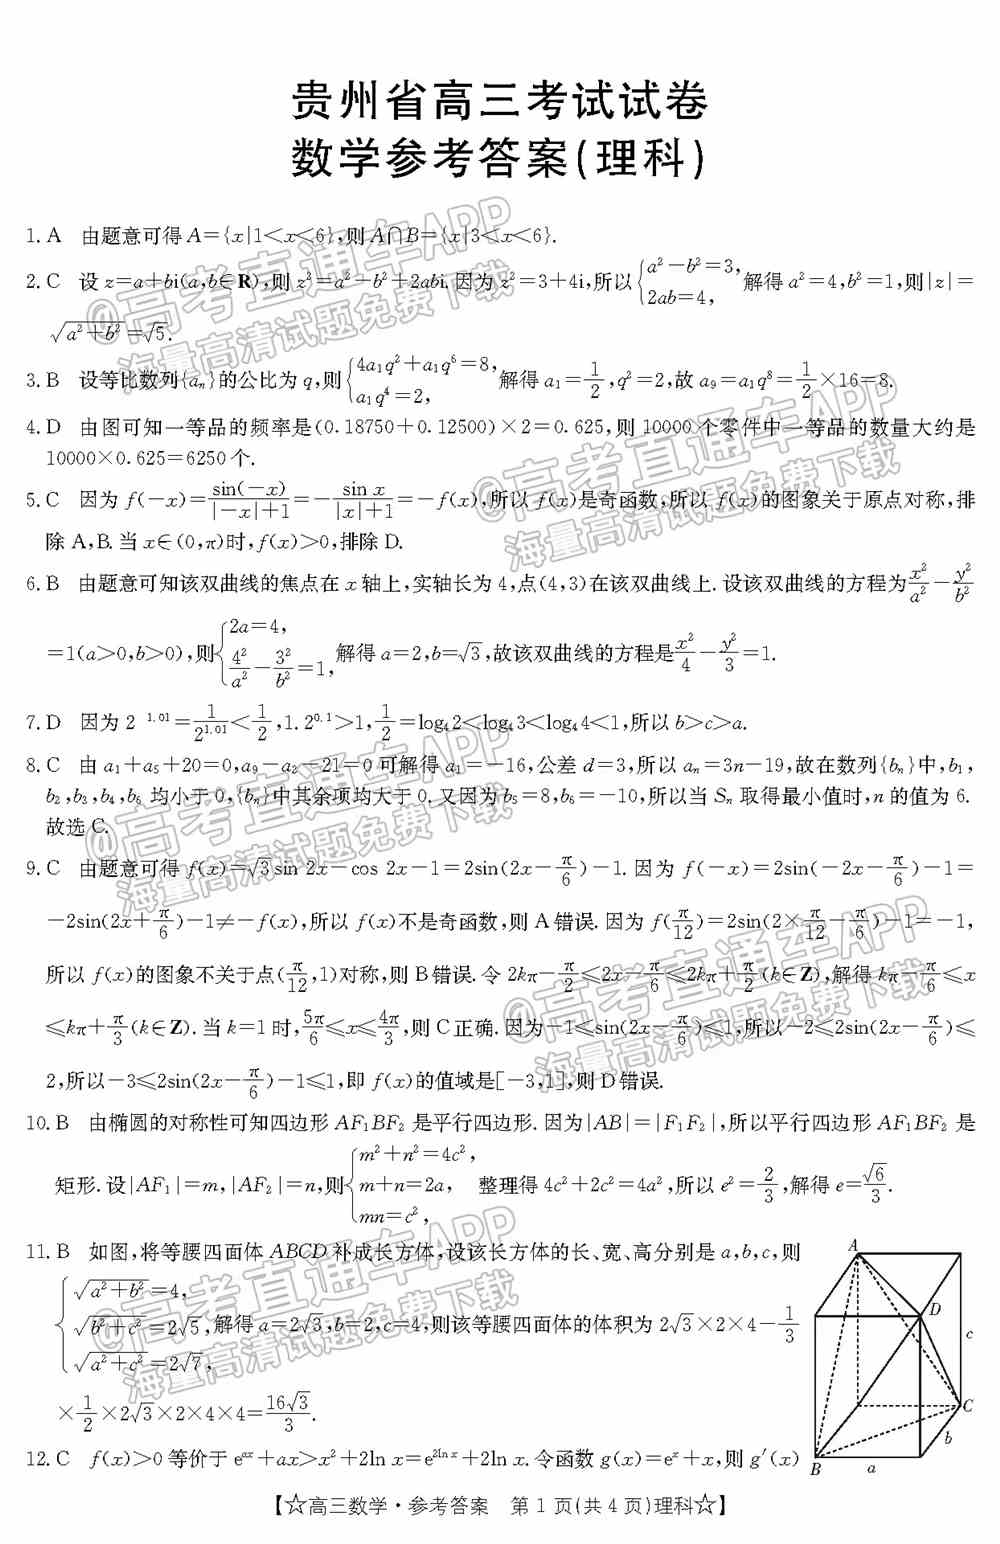 贵州省高三考试试卷
数学参考答案(理科)
1. A 由题意可得A={x|1<x<6},则A∩B={x|3<x<6}.
2. C 设z=a+bi(a,b∈R),则z²=a²-b²+2abi.因为z²=3+4i,所以{a²-b²=3, 2ab=4, 解得a²=4,b²=1,则|z|=
√(a²+b²)=√5.
3. B 设等比数列{aₙ}的公比为q,则{4a₁q²+a₁q⁶=8, a₁q⁴=2, 解得a₁=1/2,q²=2,故a₉=a₁q⁸=1/2×16=8.
4. D 由图可知一等品的频率是(0.18750+0.12500)×2=0.625,则10000个零件中一等品的数量大约是
10000×0.625=6250个.
5. C 因为f(-x)=sin(-x)/(|-x|+1)=-sin x/(|x|+1)=-f(x),所以f(x)是奇函数,所以f(x)的图象关于原点对称,排
除A,B.当x∈(0,π)时,f(x)>0,排除D.
6. B 由题意可知该双曲线的焦点在x轴上,实轴长为4,点(4,3)在该双曲线上.设该双曲线的方程为x²/a²-y²/b²
=1(a>0,b>0),则{2a=4, 4²/a²-3²/b²=1, 解得a=2,b=√3,故该双曲线的方程是x²/4-y²/3=1.
7. D 因为2^1.01=1/2^1.01<1/2,1.2^0.1>1,1/2=log₄2<log₄3<log₄4<1,所以b>c>a.
8. C 由a₁+a₅+20=0,a₉-a₂-21=0可解得a₁=-16,公差d=3,所以aₙ=3n-19,故在数列{bₙ}中,b₁,
b₂,b₃,b₄,b₆均小于0,{bₙ}中其余项均大于0.又因为b₅=8,b₆=-10,所以当Sₙ取得最小值时,n的值为6.
故选C.
9. C 由题意可得f(x)=√3sin 2x-cos 2x-1=2sin(2x-π/6)-1.因为f(-x)=2sin(-2x-π/6)-1=
-2sin(2x+π/6)-1≠-f(x),所以f(x)不是奇函数,则A错误.因为f(π/12)=2sin(2×π/12-π/6)-1=-1,
所以f(x)的图象不关于点(π/12,1)对称,则B错误.令2kπ-π/2≤2x-π/6≤2kπ+π/2(k∈Z),解得kπ-π/6≤x
≤kπ+π/3(k∈Z).当k=1时,5π/6≤x≤4π/3,则C正确.因为-1≤sin(2x-π/6)≤1,所以-2≤2sin(2x-π/6)≤
2,所以-3≤2sin(2x-π/6)-1≤1,即f(x)的值域是[-3,1],则D错误.
10. B 由椭圆的对称性可知四边形AF₁BF₂是平行四边形.因为|AB|=|F₁F₂|,所以平行四边形AF₁BF₂是
矩形.设|AF₁|=m,|AF₂|=n,则{m²+n²=4c², m+n=2a, mn=c², 整理得4c²+2c²=4a²,所以e²=2/3,解得e=√6/3.
11. B 如图,将等腰四面体ABCD补成长方体,设该长方体的长、宽、高分别是a,b,c,则
{√(a²+b²)=4, √(b²+c²)=2√5, √(a²+c²)=2√7, 解得a=2√3,b=2,c=4,则该等腰四面体的体积为2√3×2×4-1/3
×1/2×2√3×2×4×4=16√3/3.
A
D
c
C
b
B
a
12. C f(x)>0等价于e^ax+ax>x²+2ln x=e^(2ln x)+2ln x.令函数g(x)=eˣ+x,则g′(x)
【☆高三数学·参考答案 第1页(共4页)理科☆】
@高考直通车APP
海量高清试题免费下载
@高考直通车APP
海量高清试题免费下载
@高考直通车APP
海量高清试题免费下载
@高考直通车APP
海量高清试题免费下载
@高考直通车APP
海量高清试题免费下载